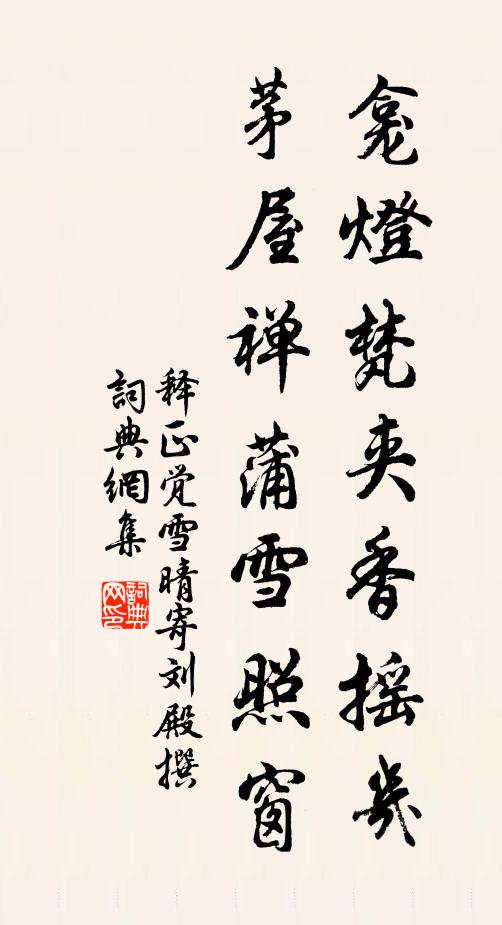 龛燈梵夹香摇几
茅屋禅蒲雪照窗
释正觉雪晴寄刘殿撰
詞典網集
詞典
网印